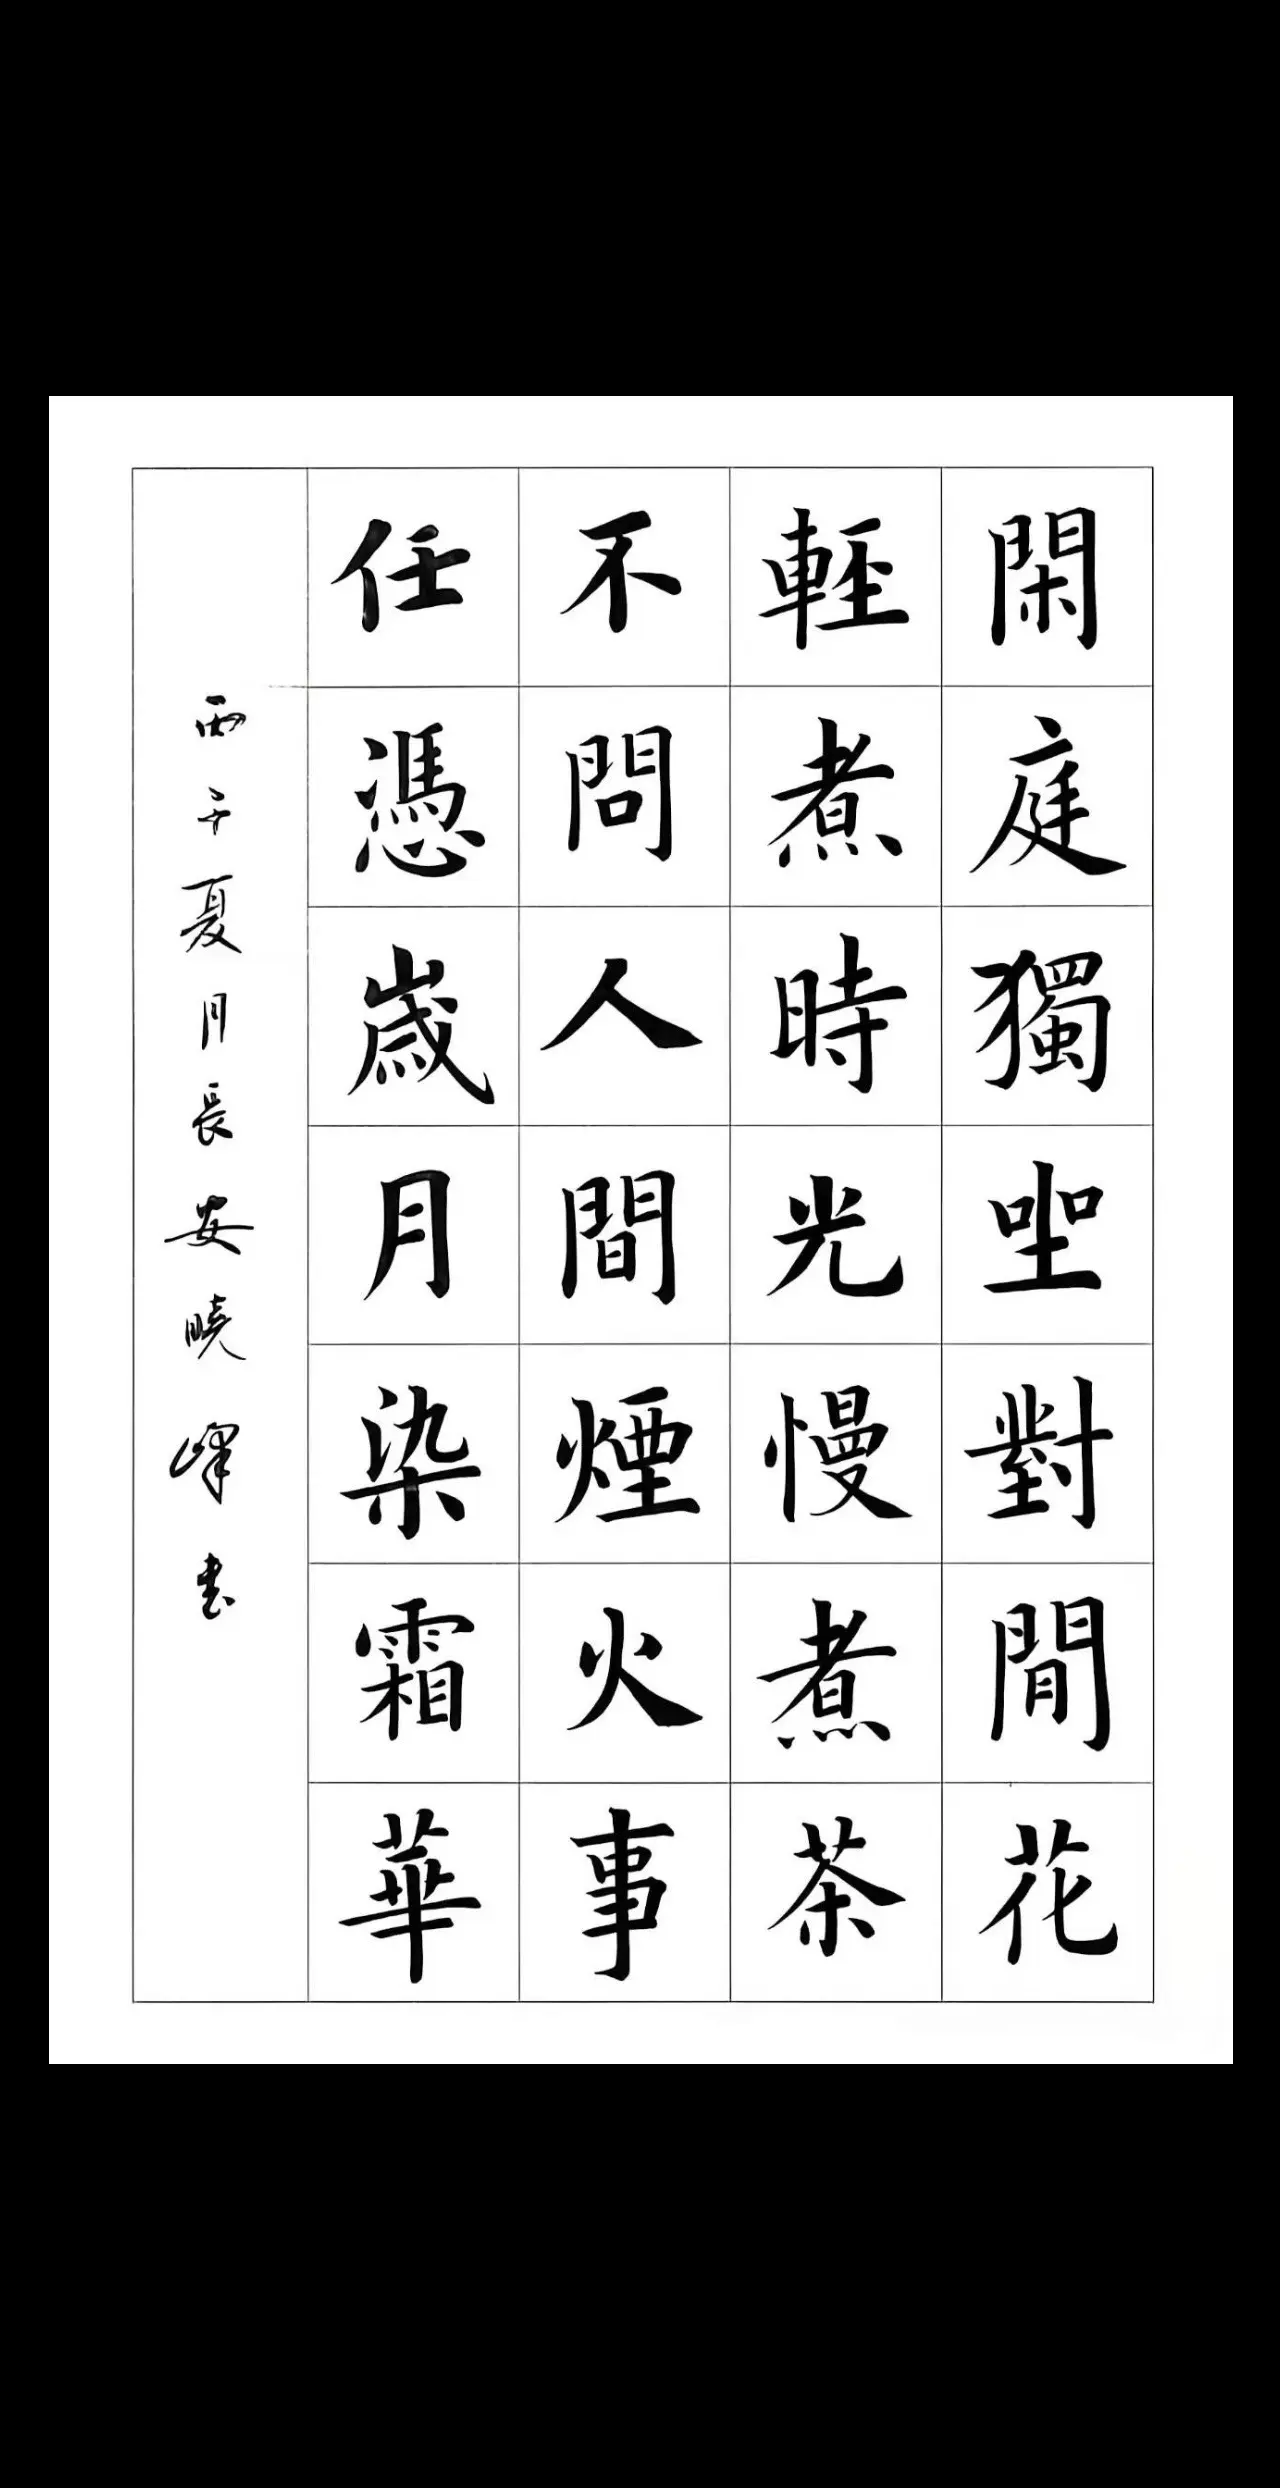 閑庭獨坐對閒花
輕煮時光慢煮茶
不問人間煙火事
任憑歲月染霜華
丙午夏月長安曉峰書